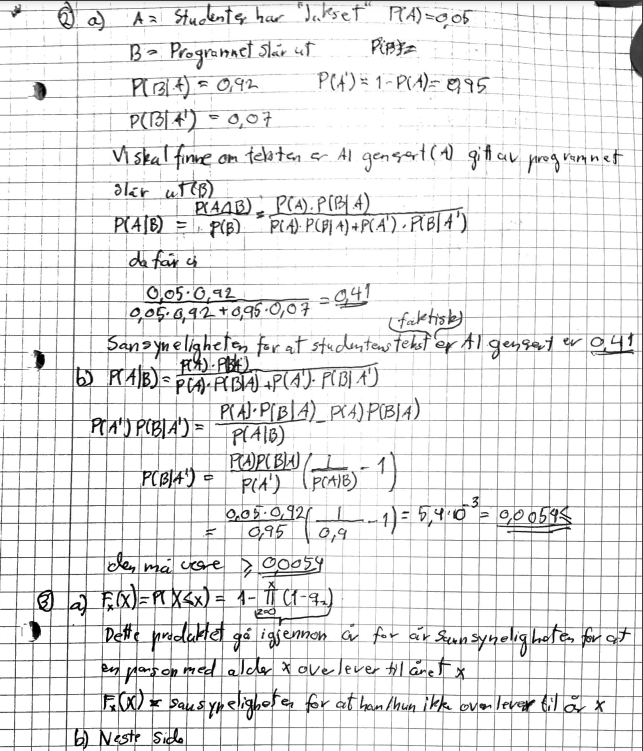 ② a) A = Studenten har "Jukset" P(A)=0,05
B = Programmet slår ut P(B)=
P(B|A) = 0,92 P(A') = 1-P(A) = 0,95
P(B|A') = 0,07
Vi skal finne om teksten er AI gengert (A) gitt av programmet
slår ut (B)
P(A|B) = P(A∩B) / P(B) = P(A)·P(B|A) / P(A)·P(B|A)+P(A')·P(B|A')
da får vi
0,05·0,92 / 0,05·0,92+0,95·0,07 = 0,41
(faktisk)
Sansyneligheten for at studentens tekst er AI gengert er 0,41
b) P(A|B) = P(A)·P(B|A) / P(A)·P(B|A)+P(A')·P(B|A')
P(A')P(B|A') = P(A)·P(B|A) / P(A|B) - P(A)P(B|A)
P(B|A') = P(A)P(B|A) / P(A') (1 / P(A|B) - 1)
= 0,05·0,92 / 0,95 (1 / 0,9 - 1) = 5,4·10⁻³ = 0,0054
den må være ≥ 0,0054
③ a) Fx(X) = P(X≤x) = 1-∏ (1-q₂)
x
z=0
Dette produktet gå igjennom år for år sansyneligheten for at
en person med alder x overlever til året x
Fx(X) = sansyneligheten for at han/hun ikke overlever til år x
b) Neste side